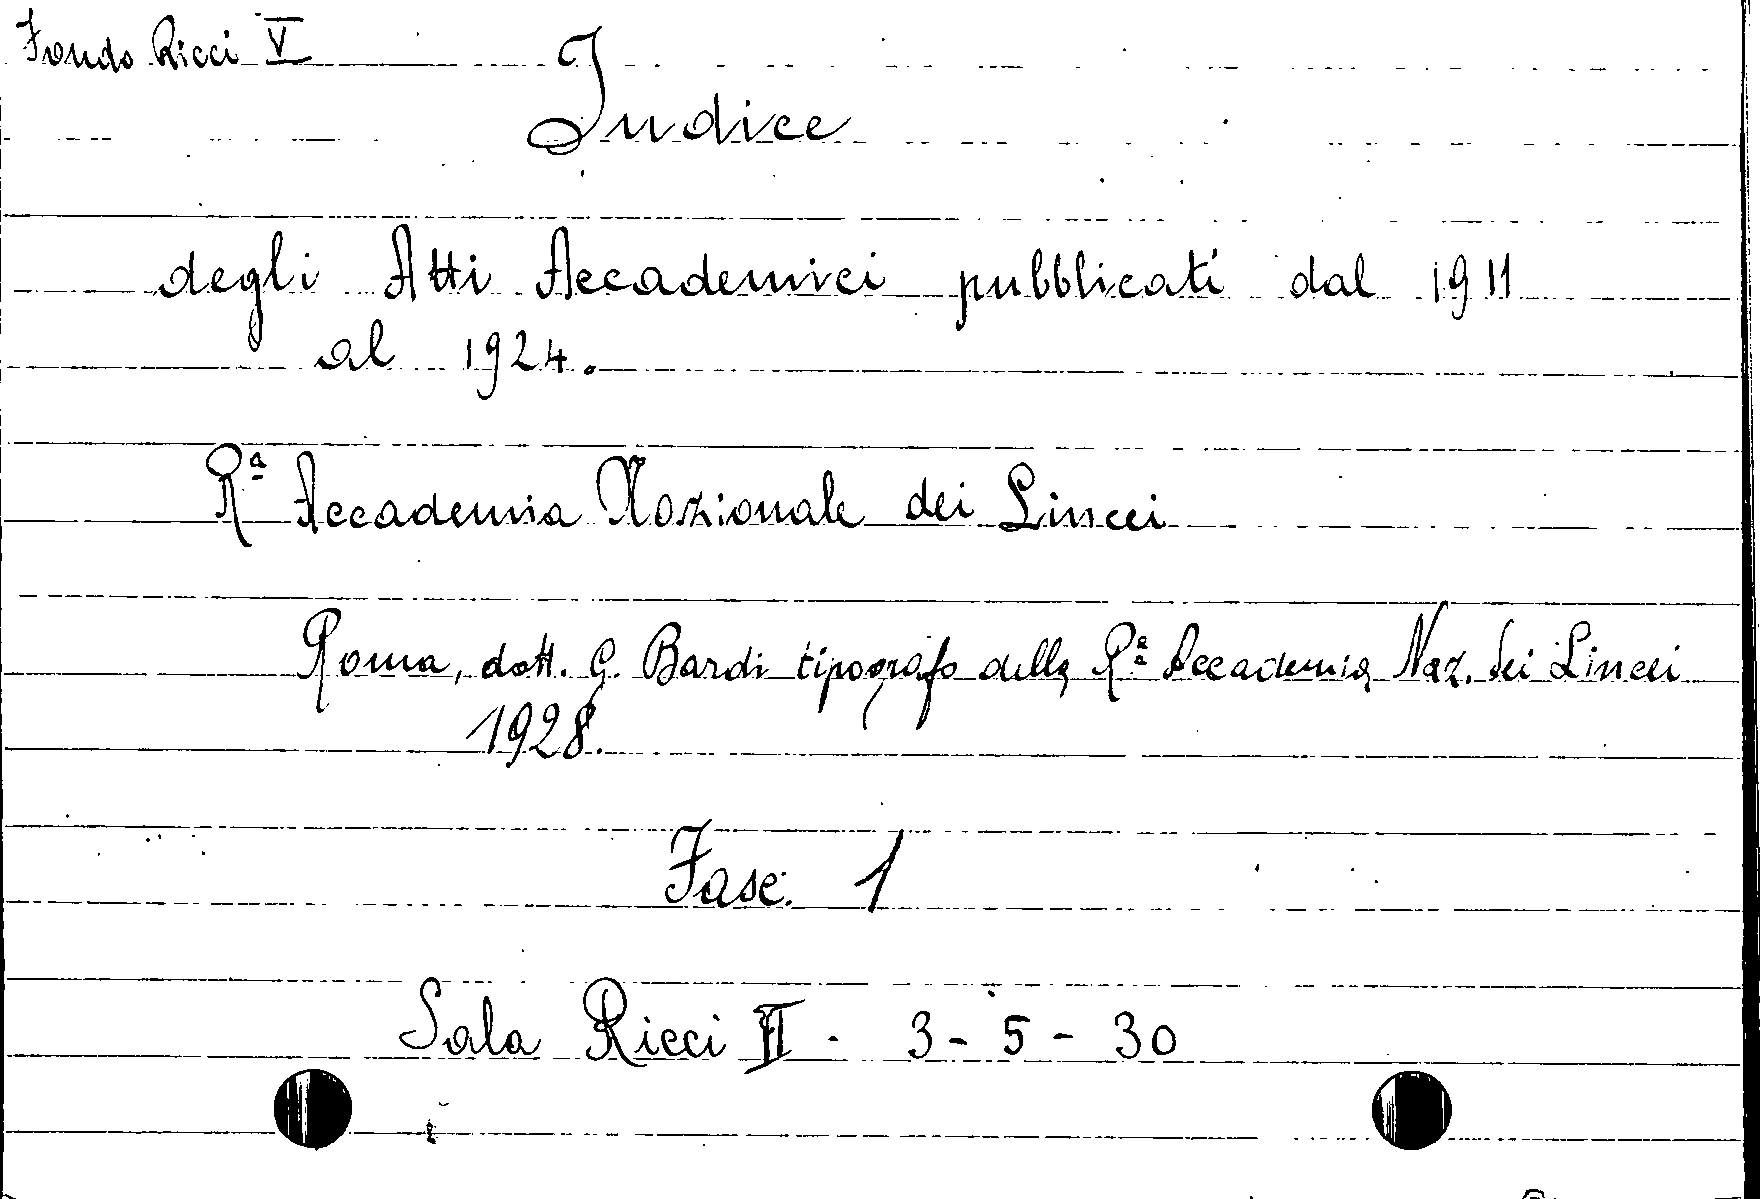 Fondo Ricci V
Indice
degli Atti Accademici pubblicati dal 1911
al 1924.
Rª Accademia Nazionale dei Lincei
Roma, dott. G. Bardi tipografo della Rª Accademia Naz. dei Lincei
1928.
Fasc. 1
Sala Ricci II - 3 - 5 - 30